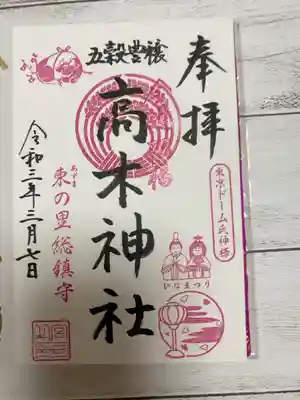 奉拝
五穀豊穣
高木神社
東京ドーム氏神様
ひなまつり
あずま
東の里総鎮守
令和三年三月七日